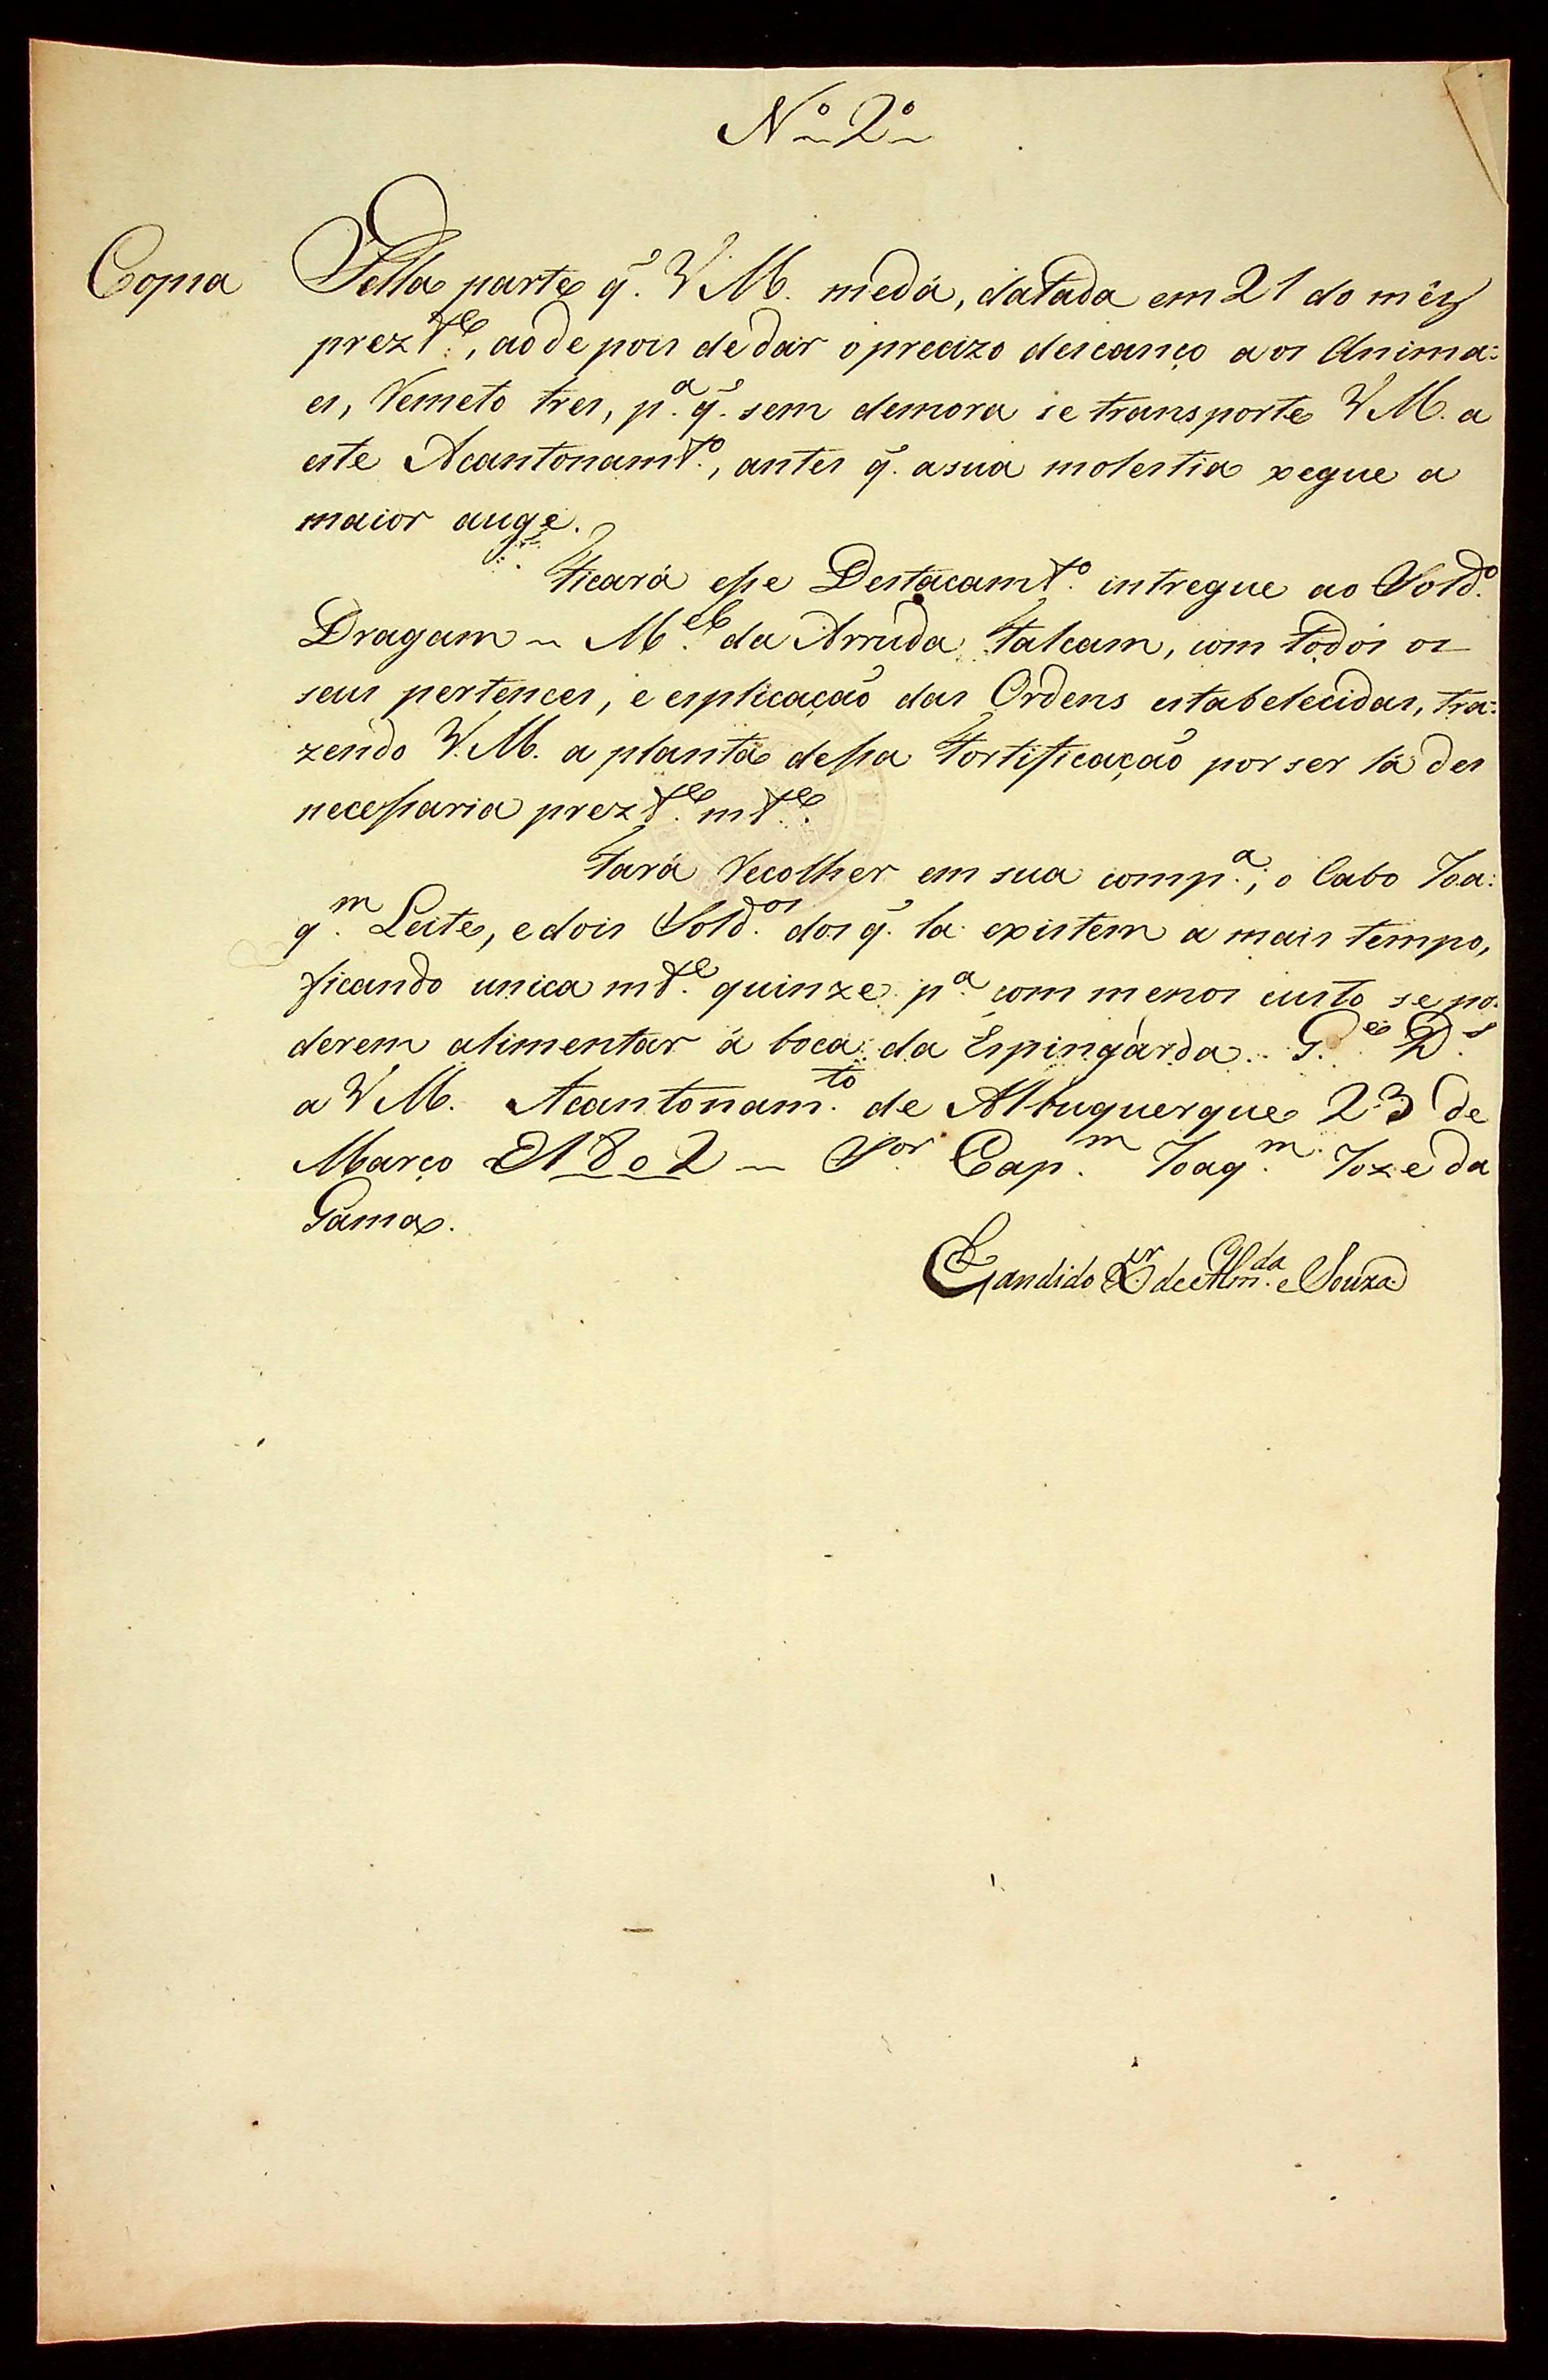 Nº 2º
Copia
Pella parte q̃. V M. medá, datada em 21 do mêz
prezte., aode pois dedar o precizo descanço a os Anima:
es, Remeto tres, pª. q̃. sem demora se transporte V M. a
este Acantonamto., antes q̃. asua molestia xegue a
maior auge.
Ficará esse Destacamto. intregue ao Soldo.
Dragam ~ Mel. da Arruda Falcam, com todos os
seus pertences, e esplicação das Ordens estabelecidas, tra:
zendo V. M. a planta dessa Fortificação por ser lá des
necessaria prezte.mte.
Fará Recolher em sua compª., o Cabo Joa:
qm. Leite, edois Soldos. dos q̃. la existem a mais tempo,
ficando unica mte. quinze pª. com menos custo se po:
derem alimentar á boca da Espingarda. Ge. Ds.
a V M. Acantonamto. de Albuquerque 23 de
Março D 1802 ~ Sor. Capm. Joaqm. Joze da
Gama.
Candido Xer. de Almda. e Souza